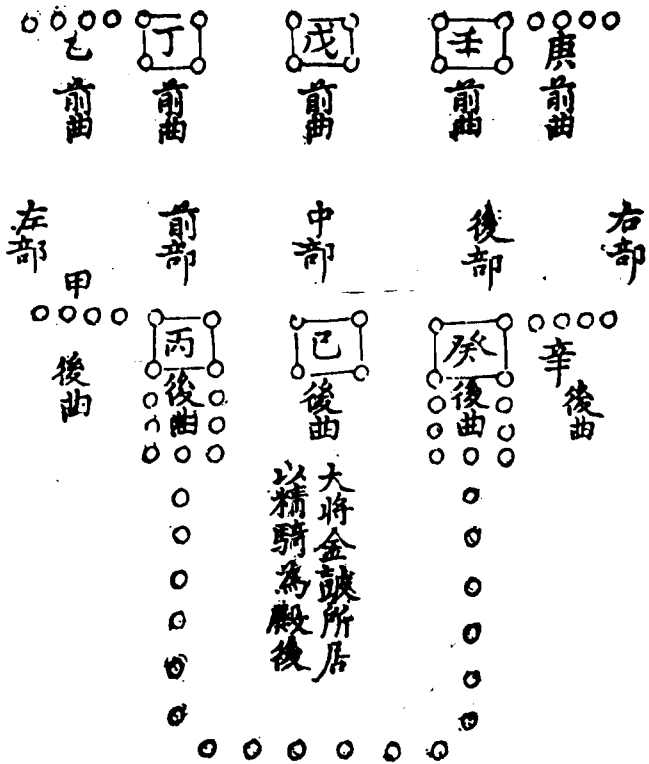 庚前曲
壬前曲
戊前曲
丁前曲
乙前曲
右部
後部
中部
前部
左部
辛後曲
癸後曲
已後曲
丙後曲
甲後曲
大將金皷所居
以精騎為殿後